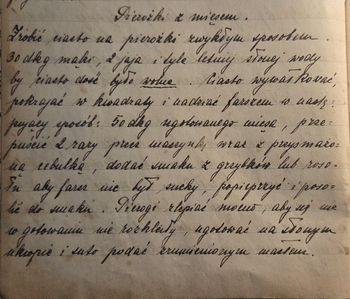 Pierożki z mięsem.
Zrobić ciasto na pierożki zwykłym sposobem.
30 dkg mąki, 2 jaja i tyle letniej słonej wody
by ciasto dość było wolne. Ciasto wywałkować,
pokrajać w kwadraty i nadziać farszem w nastę-
pujący sposób: 50 dkg ugotowanego mięsa, prze-
puścić 2 razy przez maszynkę wraz z przysmażo-
ną cebulką, dodać smaku z grzybków lub roso-
łu aby farsz nie był suchy, popieprzyć i poso-
lić do smaku. Pierogi zlepiać mocno, aby się nie
w gotowaniu nie rozkleiły, ugotować na słonym
ukropie i suto podać zrumienionym masłem.